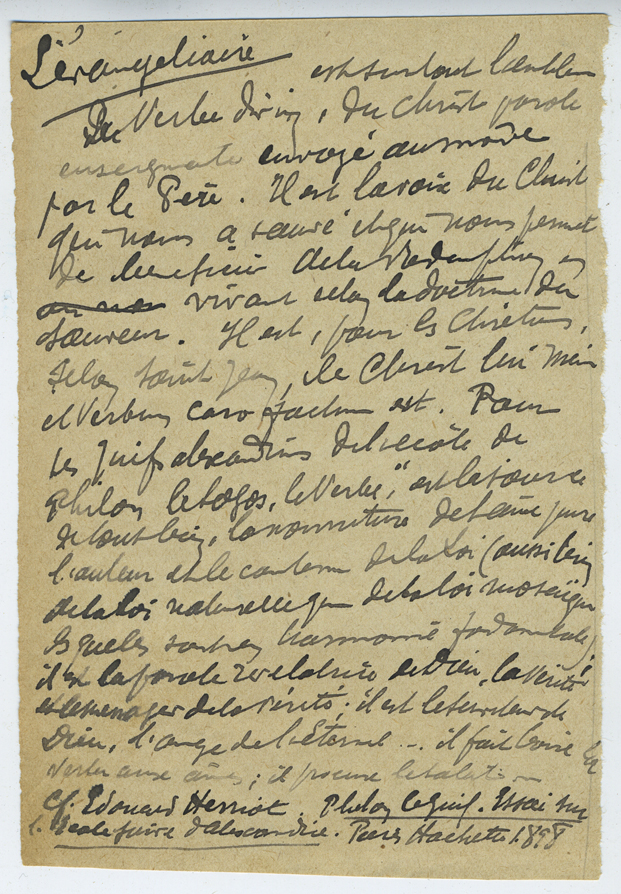 L'évangéliaire est surtout l'emblème
Du Verbe divin, du Christ parole
enseignante envoyé au monde
par le Père. Il est la voix du Christ
qui nous a sauvé et qui nous permet
de bénéficier de la Rédemption en
vivant selon la doctrine du
Sauveur. Il est, pour les Chrétiens,
selon Saint Jean, le Christ lui même
et Verbum caro factum est. Pour
les Juifs alexandrins de l'école de
Philon le Logos, le Verbe, "est la source
de tout bien, la nourriture de l'âme pure
l'auteur et le contenu de la Loi (aussi bien
de la loi naturelle que de la loi mosaïque
lesquelles sont en harmonie fondamentale)
il est la parole révélatrice de Dieu, la vérité
et le messager de la vérité; il est le serviteur de
Dieu, l'ange de l'Éternel ... il fait
aux âmes; il procure le salut
Cf. Edouard Herriot. Philon le Juif. Essai sur
l'école juive d'alexandrie. Paris Hachette 1898